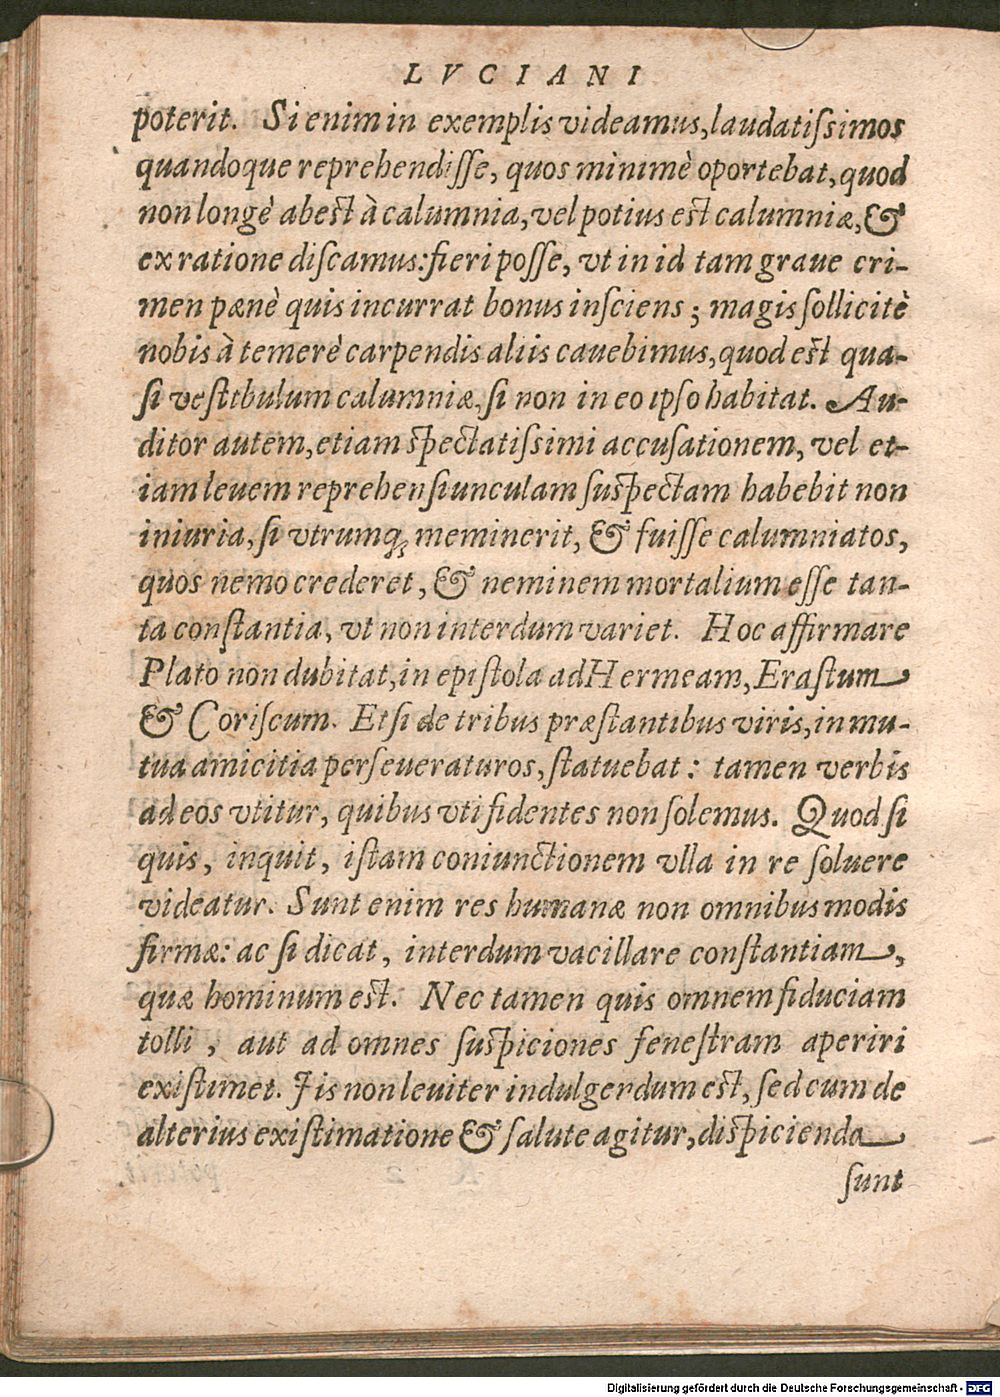 LVCIANI
poterit. Si enim in exemplis videamus, laudatißimos
quandoque reprehendiſſe, quos minimè oportebat, quod
non longè abest à calumnia, vel potius est calumniæ, &
ex ratione diſcamus: fieri poſſe, vt in id tam graue cri-
men pænè quis incurrat bonus inſciens; magis ſollicitè
nobis à temerè carpendis aliis cauebimus, quod est qua-
ſi veſtibulum calumniæ, ſi non in eo ipſo habitat. Au-
ditor autem, etiam ſpectatiſsimi accuſationem, vel et-
iam leuem reprehenſiunculam ſuſpectam habebit non
iniuria, ſi vtrumq; meminerit, & fuiſſe calumniatos,
quos nemo crederet, & neminem mortalium eſſe tan-
ta conſtantia, vt non interdum variet. Hoc affirmare
Plato non dubitat, in epiſtola ad Hermeam, Eraſtum
& Coriſcum. Etſi de tribus præſtantibus viris, in mu-
tua amicitia perſeueraturos, ſtatuebat: tamen verbis
ad eos vtitur, quibus vti fidentes non ſolemus. Quod ſi
quis, inquit, iſtam coniunctionem vlla in re ſoluere
videatur. Sunt enim res humanæ non omnibus modis
firmæ: ac ſi dicat, interdum vacillare conſtantiam,
quæ hominum est. Nec tamen quis omnem fiduciam
tolli, aut ad omnes ſuſpiciones feneſtram aperiri
exiſtimet. Iis non leuiter indulgendum est, ſed cum de
alterius exiſtimatione & ſalute agitur, diſpicienda
ſunt
Digitalisierung gefördert durch die Deutsche Forschungsgemeinschaft - DFG